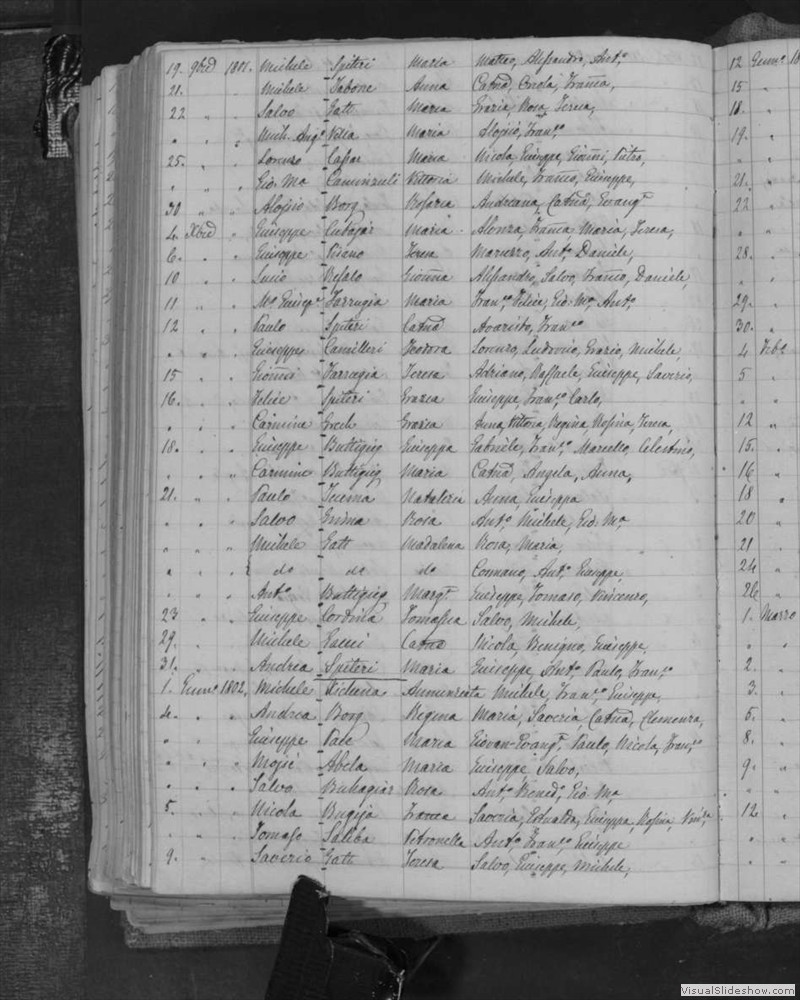 19. 9bre 1801. Michele Spiteri Maria Matteo, Alessandro, Ant.o
21. " " Michele Tabone Anna Catna, Orsola, Franca,
22 " " Salvo Gatt Maria Grazia, Rosa, Teresa,
" " " Mich. Ang.o Vella Maria Aloisio, Fran.co
25. " " Lorenzo Casar Maria Nicola, Giuseppe, Gionni, Pietro,
" " " Gio: Ma Vittoria Michele, Franco, Giuseppe,
30 " " Aloisio Borg Rosaria Andreana, Catna, Evang.ta
4 Xbre " Giuseppe Cutajar Maria Alonza, Franca Maria, Teresa,
6. " " Giuseppe Pisano Teresa Ant.o Daniele,
10 " " Lucio Refalo Gionna Alessandro, Salvo, Franco, Daniele,
11 " " Ma Giusep.e Farrugia Maria Fran.co, Felice, Gio: Ma, Ant.o
12 " " Paulo Spiteri Catna Fran.co
" " " Giuseppe Camilleri Teodora Lorenzo, Ludovico, Grazio, Michele,
15 " " Gionni Farrugia Teresa Adriano, Raffaele, Giuseppe, Saverio,
16. " " Felice Spiteri Grazia Giuseppe, Fran.co Carlo,
" " " Carmine Grech Grazia Anna, Vittoria, Regina, Rosina, Teresa,
18. " " Giuseppe Buttigieg Giuseppa Gabriele, Fran.co Marcello, Celestino,
" " " Carmine Buttigieg Maria Catna, Angela, Anna,
21. " " Paulo Teuma Natalizia Anna, Giuseppa
" " " Salvo Grima Rosa Ant.o Michele, Gio: Ma,
" " " Michele Gatt Madalena Rosa, Maria,
" " " do do do Ant.o Giuseppe,
" " " Ant.o Buttigieg Marg.ta Giuseppe, Tomaso, Vincenzo,
23 " " Giuseppe Cordina Tomasa Salvo, Michele,
29. " " Michele Catna Nicola, Benigno, Giuseppe,
31. " " Andrea Spiteri Maria Giuseppe, Ant.o Paulo, Fran.co
1. Genn.o 1802. Michele Xicluna Annunziata Michele, Fran.co, Giuseppe,
4. " " Andrea Borg Regina Maria, Saveria, Catna, Clemenza,
" " " Giuseppe Pace Maria Giovan-Evang.ta, Paulo, Nicola, Fran.co
" " " Mosè Abela Maria Giuseppe, Salvo,
" " " Salvo Buhagiar Rosa Ant.o Bened.o, Gio: Ma,
5. " " Nicola Bugeja Franca Saveria, Giuseppa, Rosina,
" " " Tomaso Saliba Petronella Ant.o Fran.co Giuseppe
9. " " Saverio Gatt Teresa Salvo, Giuseppe, Michele,
12 Genn.o 18
15 "
18. "
19. "
" "
21. "
22 "
" "
28. "
" "
29. "
30. "
4 Feb.o
5 "
" "
12 "
15. "
16 "
18 "
20 "
21 "
24 "
26 "
1. Marzo
" "
2. "
3. "
5. "
8. "
9. "
" "
12 "
" "
" "
VisualSlideshow.com